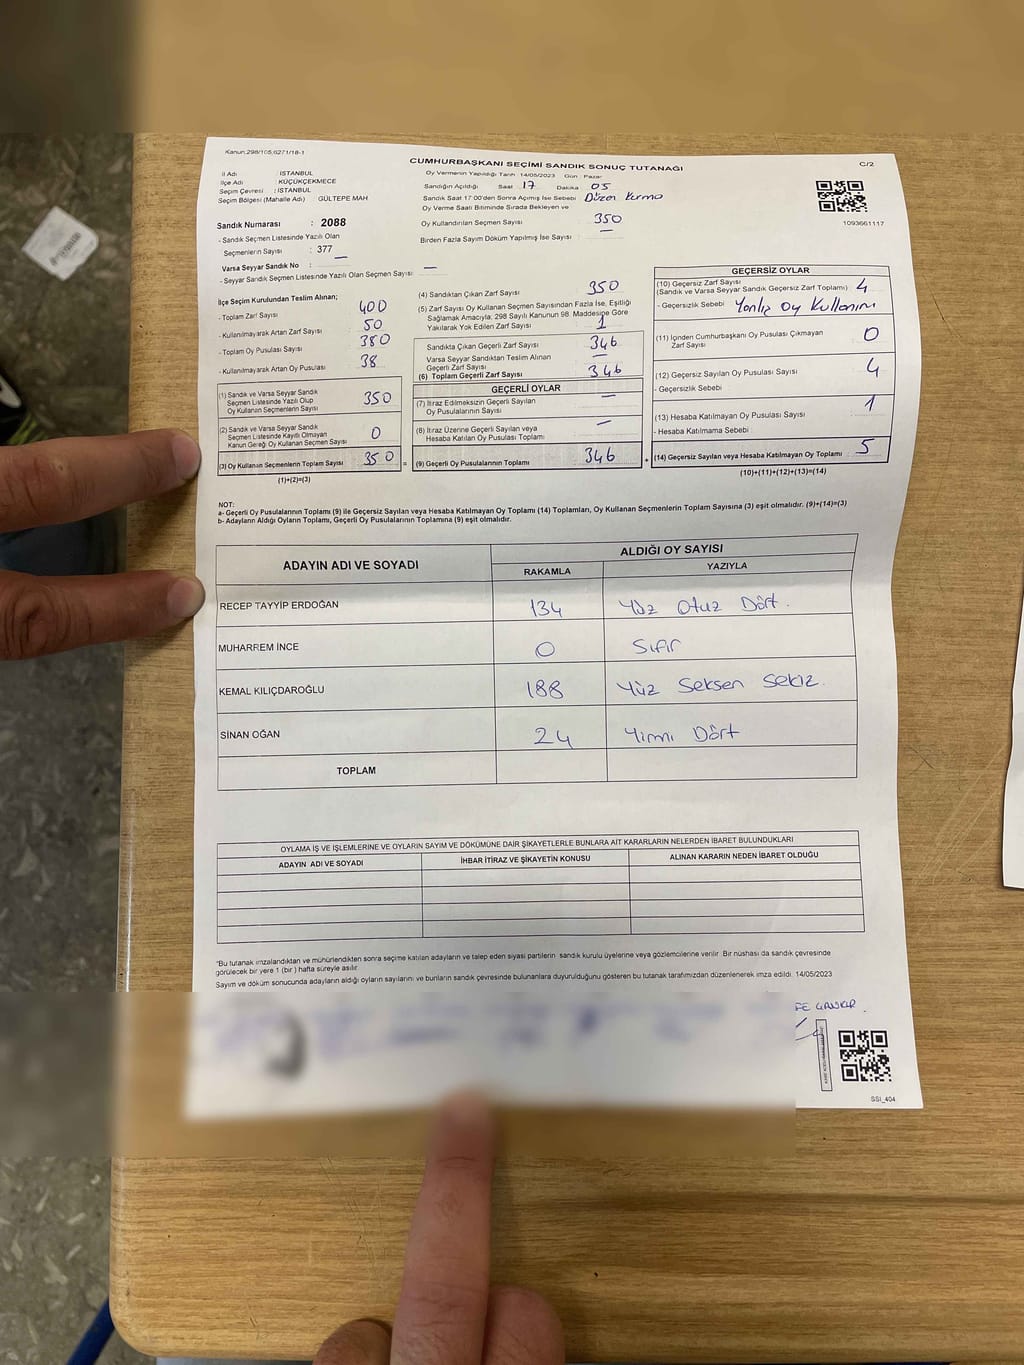 Kanun:298/105,6271/18-1
CUMHURBAŞKANI SEÇİMİ SANDIK SONUÇ TUTANAĞI
C/2
İl Adı : İSTANBUL
İlçe Adı : KÜÇÜKÇEKMECE
Seçim Çevresi : İSTANBUL
Seçim Bölgesi (Mahalle Adı) : GÜLTEPE MAH
Sandık Numarası : 2088
- Sandık Seçmen Listesinde Yazılı Olan
Seçmenlerin Sayısı : 377
Varsa Seyyar Sandık No :
- Seyyar Sandık Seçmen Listesinde Yazılı Olan Seçmen Sayısı: —
Oy Vermenin Yapıldığı Tarih 14/05/2023 Gün : Pazar
Sandığın Açıldığı Saat 17 Dakika 05
Sandık Saat 17:00'den Sonra Açılmış İse Sebebi Düzen Kurma
Oy Verme Saati Bitiminde Sırada Bekleyen ve
Oy Kullandırılan Seçmen Sayısı 350
Birden Fazla Sayım Döküm Yapılmış İse Sayısı : —
1093661117
İlçe Seçim Kurulundan Teslim Alınan;
- Toplam Zarf Sayısı 400
- Kullanılmayarak Artan Zarf Sayısı 50
- Toplam Oy Pusulası Sayısı 380
- Kullanılmayarak Artan Oy Pusulası 38
(1) Sandık ve Varsa Seyyar Sandık
Seçmen Listesinde Yazılı Olup
Oy Kullanan Seçmenlerin Sayısı 350
(2) Sandık ve Varsa Seyyar Sandık
Seçmen Listesinde Kayıtlı Olmayan
Kanun Gereği Oy Kullanan Seçmen Sayısı 0
(3) Oy Kullanan Seçmenlerin Toplam Sayısı 350 =
(1)+(2)=(3)
(4) Sandıktan Çıkan Zarf Sayısı 350
(5) Zarf Sayısı Oy Kullanan Seçmen Sayısından Fazla İse, Eşitliği
Sağlamak Amacıyla; 298 Sayılı Kanunun 98. Maddesine Göre
Yakılarak Yok Edilen Zarf Sayısı 1
Sandıkta Çıkan Geçerli Zarf Sayısı 346
Varsa Seyyar Sandıktan Teslim Alınan
Geçerli Zarf Sayısı —
(6) Toplam Geçerli Zarf Sayısı 346
GEÇERLİ OYLAR
(7) İtiraz Edilmeksizin Geçerli Sayılan
Oy Pusulalarının Sayısı —
(8) İtiraz Üzerine Geçerli Sayılan veya
Hesaba Katılan Oy Pusulası Toplamı —
(9) Geçerli Oy Pusulalarının Toplamı 346 +
GEÇERSİZ OYLAR
(10) Geçersiz Zarf Sayısı
(Sandık ve Varsa Seyyar Sandık Geçersiz Zarf Toplamı) 4
- Geçersizlik Sebebi Yanlış Oy Kullanım
(11) İçinden Cumhurbaşkanı Oy Pusulası Çıkmayan
Zarf Sayısı 0
(12) Geçersiz Sayılan Oy Pusulası Sayısı 4
- Geçersizlik Sebebi
(13) Hesaba Katılmayan Oy Pusulası Sayısı 1
- Hesaba Katılmama Sebebi
(14) Geçersiz Sayılan veya Hesaba Katılmayan Oy Toplamı 5
(10)+(11)+(12)+(13)=(14)
NOT:
a- Geçerli Oy Pusulalarının Toplamı (9) ile Geçersiz Sayılan veya Hesaba Katılmayan Oy Toplamı (14) Toplamları, Oy Kullanan Seçmenlerin Toplam Sayısına (3) eşit olmalıdır. (9)+(14)=(3)
b- Adayların Aldığı Oyların Toplamı, Geçerli Oy Pusulalarının Toplamına (9) eşit olmalıdır.
ADAYIN ADI VE SOYADI
ALDIĞI OY SAYISI
RAKAMLA YAZIYLA
RECEP TAYYİP ERDOĞAN 134 Yüz Otuz Dört.
MUHARREM İNCE 0 Sıfır
KEMAL KILIÇDAROĞLU 188 Yüz Seksen Sekiz.
SİNAN OĞAN 24 Yirmi Dört
TOPLAM
OYLAMA İŞ VE İŞLEMLERİNE VE OYLARIN SAYIM VE DÖKÜMÜNE DAİR ŞİKAYETLERLE BUNLARA AİT KARARLARIN NELERDEN İBARET BULUNDUKLARI
ADAYIN ADI VE SOYADI İHBAR İTİRAZ VE ŞİKAYETİN KONUSU ALINAN KARARIN NEDEN İBARET OLDUĞU
"Bu tutanak imzalandıktan ve mühürlendikten sonra seçime katılan adayların ve talep eden siyasi partilerin sandık kurulu üyelerine veya gözlemcilerine verilir. Bir nüshası da sandık çevresinde
görülecek bir yere 1 (bir) hafta süreyle asılır.
Sayım ve döküm sonucunda adayların aldığı oyların sayılarını ve bunların sandık çevresinde bulunanlara duyurulduğunu gösteren bu tutanak tarafımızdan düzenlenerek imza edildi. 14/05/2023
SSI_404